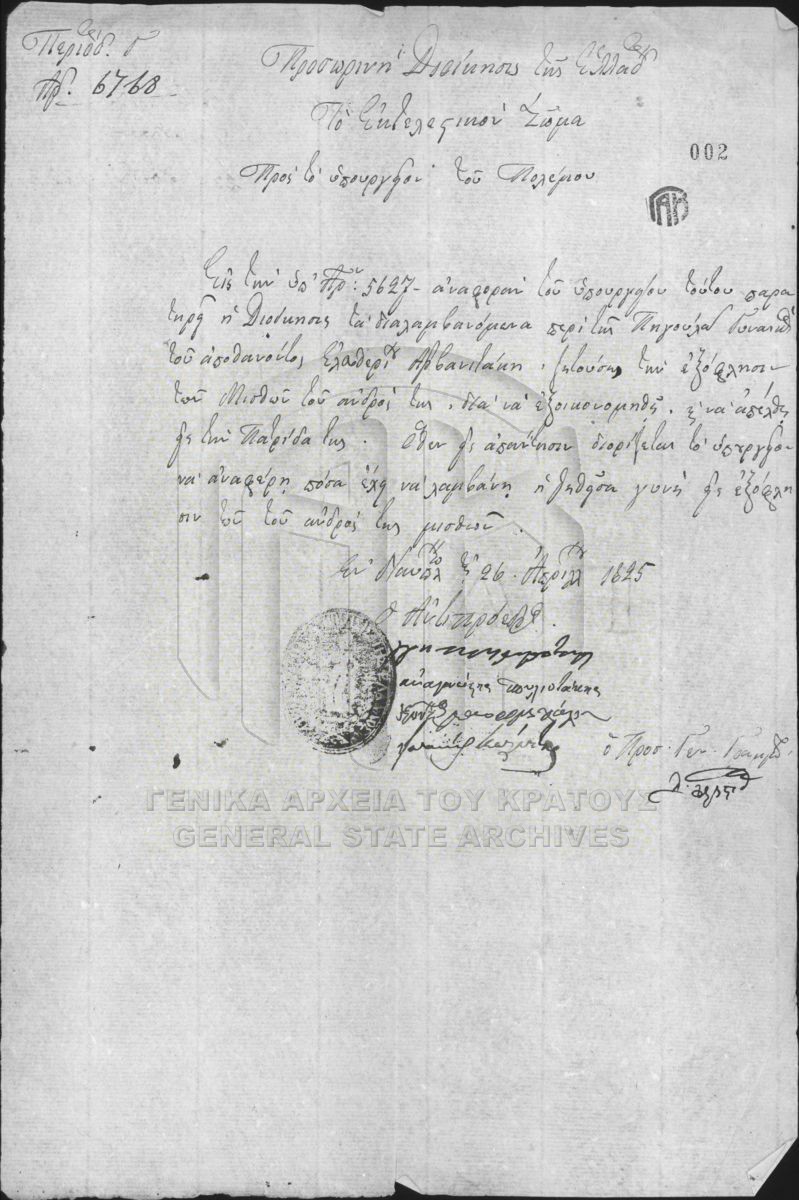 Περίοδ. Γ
Ἀρ. 6768
Προσωρινὴ Διοίκησις τῆς Ἑλλάδ
Τὸ Ἐκτελεστικὸν Σῶμα
002
Πρὸς τὸ ὑπουργεῖον τοῦ Πολέμου
ΓΑΚ
Εἰς τὴν ὑπ' Ἀρ: 5627 ἀναφορὰν τοῦ ὑπουργείου τούτου παρα
τηρεῖ ἡ Διοίκησις τὰ διαλαμβανόμενα περὶ τῆς Πηγούλας Γυναικὸς
τοῦ ἀποθανόντος Ἐλευθερίου Ἀρβανιτάκη, ζητούσης τὴν ἐξόφλησιν
τῶν Μισθῶν τοῦ ἀνδρός της, διὰ νὰ ἐξοικονομηθῇ, καὶ νὰ ἀπέλθῃ
εἰς τὴν Πατρίδα της. Ὅθεν εἰς ἀπάντησιν διορίζεται τὸ ὑπουργεῖον
νὰ ἀναφέρῃ πόσα ἔχει νὰ λαμβάνῃ ἡ ῥηθεῖσα γυνὴ εἰς ἐξόφλη
σιν τῶν τοῦ ἀνδρός της μισθῶν.
Ἐν Ναυπλ τῇ 26 Ἀπριλλ 1825
Ὁ Ἀντιπρόεδρ
ἀναγνώστης σπηλιοτάκης
ὁ Προσ. Γεν. Γραμμ
ΓΕΝΙΚΑ ΑΡΧΕΙΑ ΤΟΥ ΚΡΑΤΟΥΣ
GENERAL STATE ARCHIVES